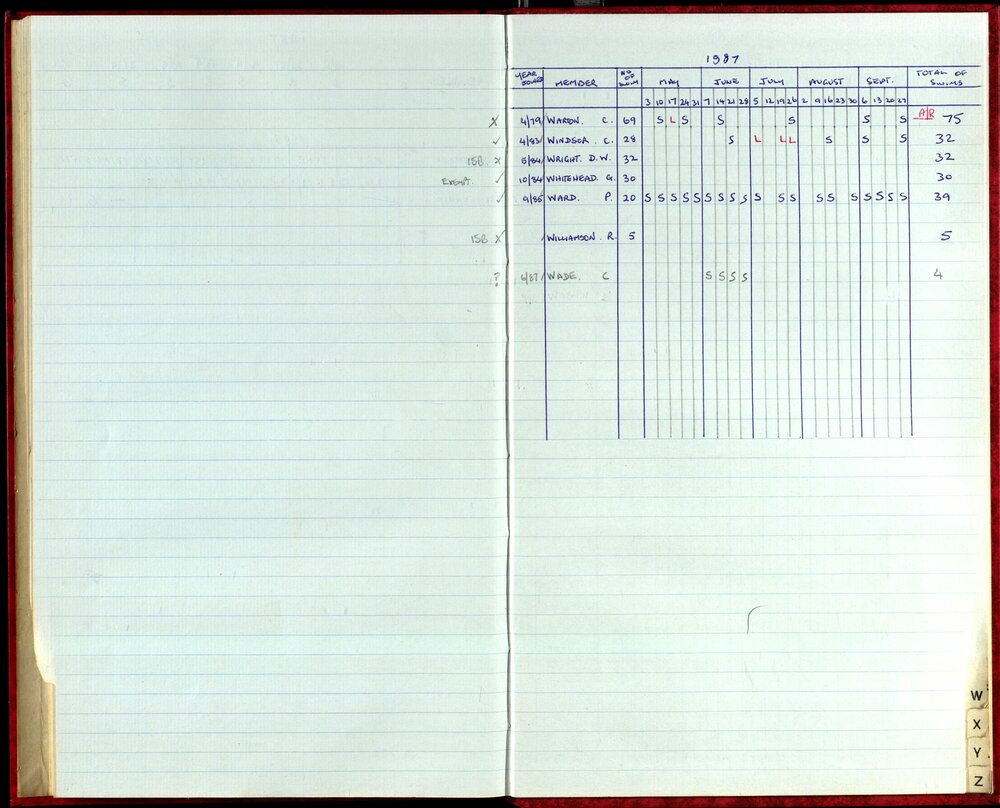 1987
YEAR JOINED MEMBER NO OF SWIM MAY JUNE JULY AUGUST SEPT. TOTAL OF SWIMS
3 10 17 24 31 7 14 21 28 5 12 19 26 2 9 16 23 30 6 13 20 27
X 4/79 WARDN. C. 69 S L S S S S S A/R 75
✓ 4/83 WINDSOR. C. 28 S L L L S S S 32
ISB. X 5/84 WRIGHT. D.W. 32 32
EXEMPT. ✓ 10/84 WHITEHEAD. G. 30 30
✓ 9/85 WARD. P. 20 S S S S S S S S S S S S S S S S S S S 39
ISB X WILLIAMSON. R. 5 5
? 6/87 WADE. C S S S S 4
W
X
Y
Z